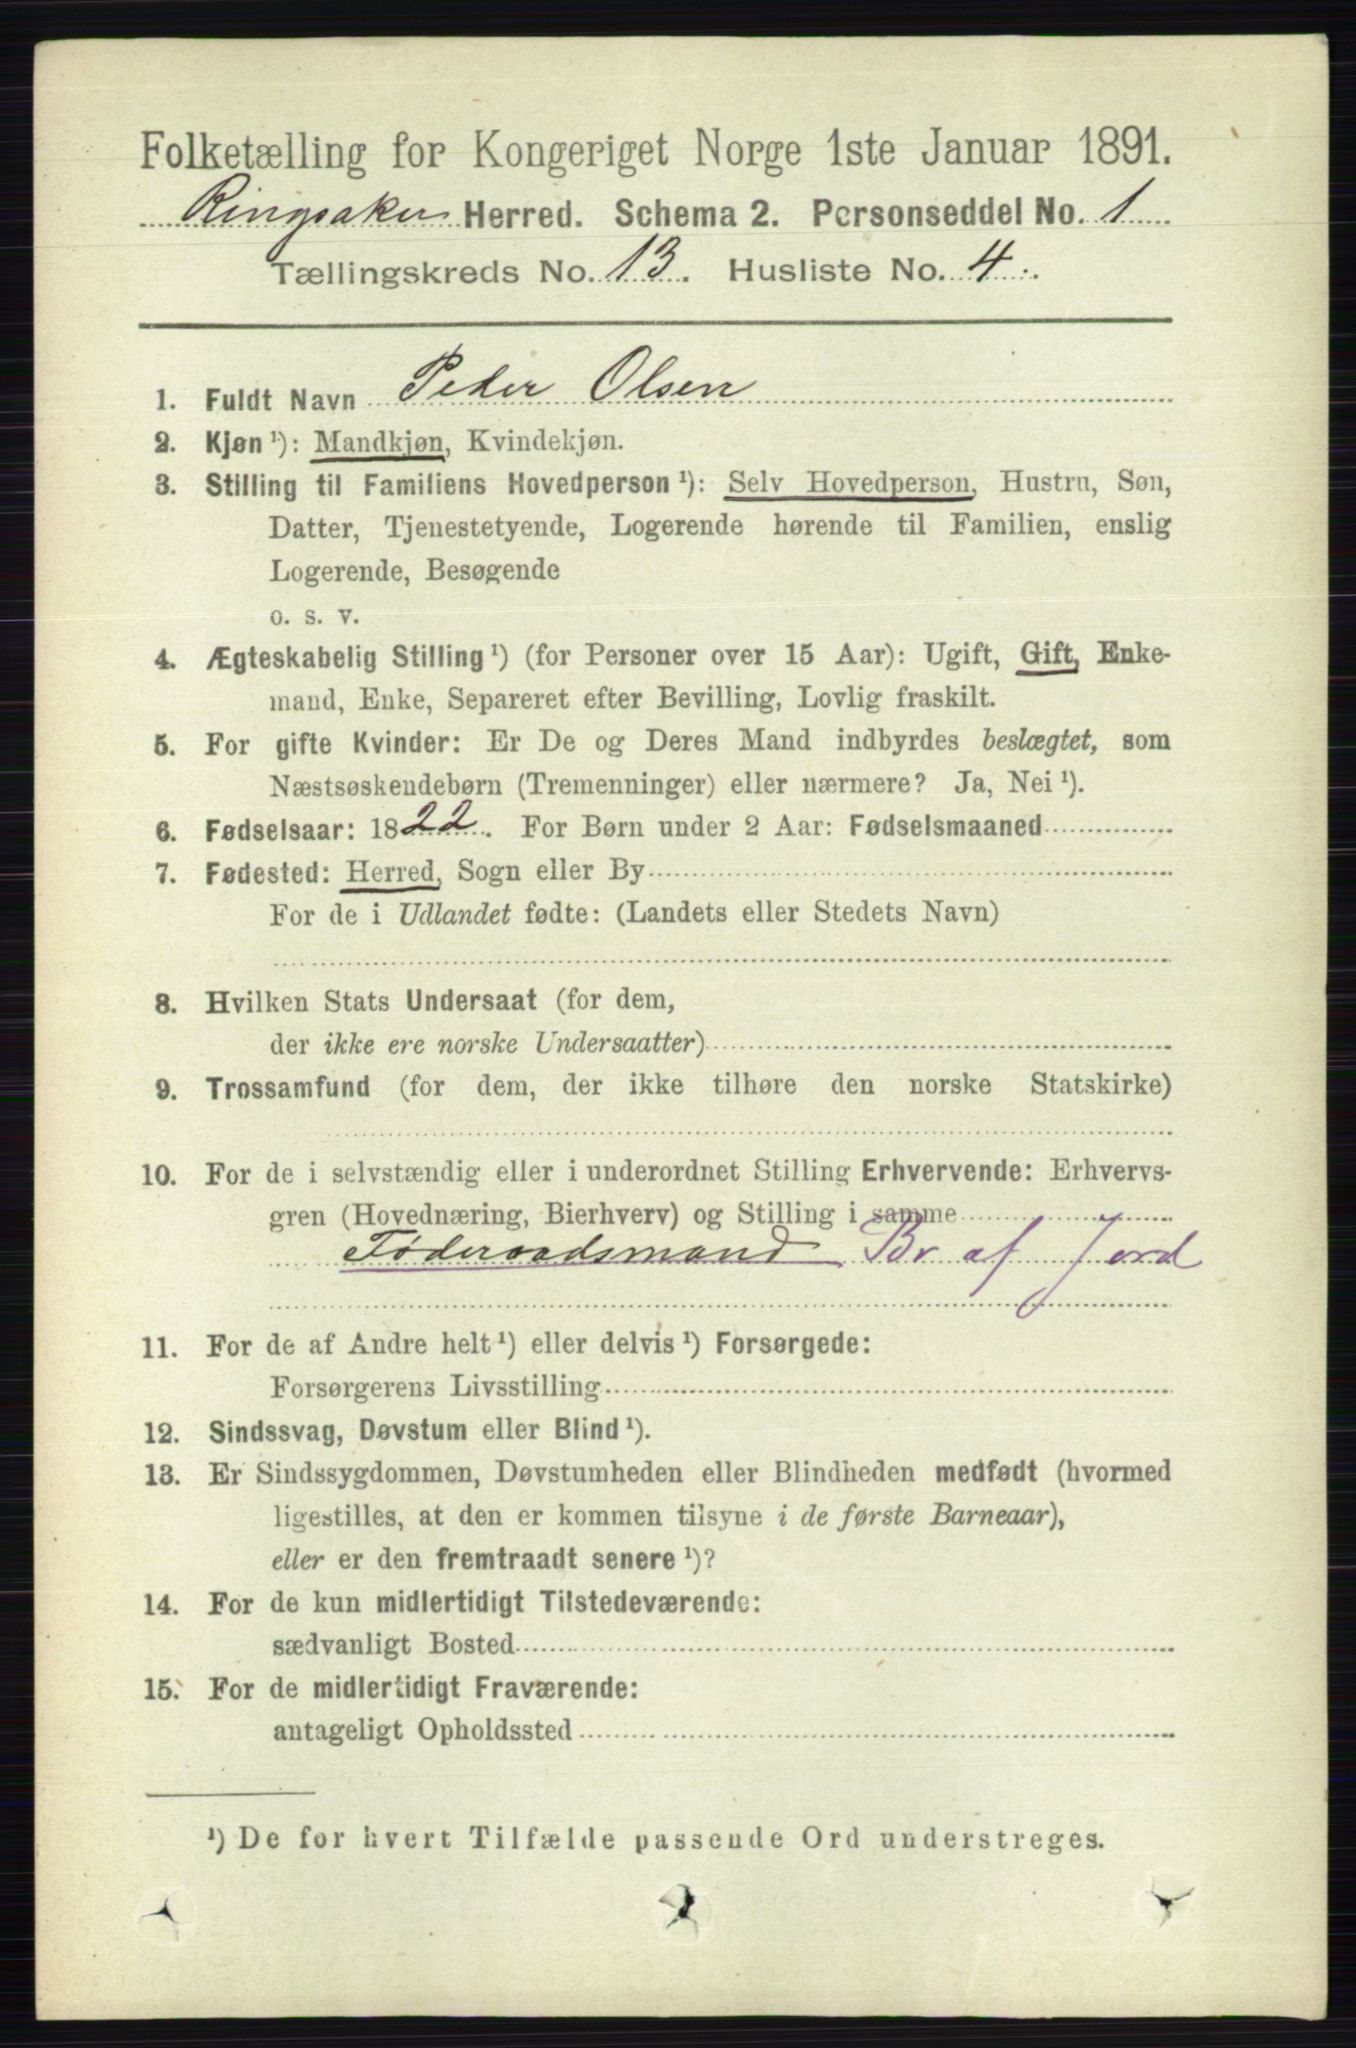 Folketælling for Kongeriget Norge 1ste Januar 1891.
Ringsaker Herred. Schema 2. Personseddel No. 1
Tællingskreds No. 13. Husliste No. 4.
1. Fuldt Navn Peder Olsen
2. Kjøn ¹): Mandkjøn, Kvindekjøn.
3. Stilling til Familiens Hovedperson ¹): Selv Hovedperson, Hustru, Søn,
Datter, Tjenestetyende, Logerende hørende til Familien, enslig
Logerende, Besøgende
o. s. v.
4. Ægteskabelig Stilling ¹) (for Personer over 15 Aar): Ugift, Gift, Enke-
mand, Enke, Separeret efter Bevilling, Lovlig fraskilt.
5. For gifte Kvinder: Er De og Deres Mand indbyrdes beslægtet, som
Næstsøskendebørn (Tremenninger) eller nærmere? Ja, Nei ¹).
6. Fødselsaar: 1822. For Børn under 2 Aar: Fødselsmaaned
7. Fødested: Herred, Sogn eller By
For de i Udlandet fødte: (Landets eller Stedets Navn)
8. Hvilken Stats Undersaat (for dem,
der ikke ere norske Undersaatter)
9. Trossamfund (for dem, der ikke tilhøre den norske Statskirke)
10. For de i selvstændig eller i underordnet Stilling Erhvervende: Erhvervs-
gren (Hovednæring, Bierhverv) og Stilling i samme
Føderaadsmand Br af Jord
11. For de af Andre helt ¹) eller delvis ¹) Forsørgede:
Forsørgerens Livsstilling
12. Sindssvag, Døvstum eller Blind ¹).
13. Er Sindssygdommen, Døvstumheden eller Blindheden medfødt (hvormed
ligestilles, at den er kommen tilsyne i de første Barneaar),
eller er den fremtraadt senere ¹)?
14. For de kun midlertidigt Tilstedeværende:
sædvanligt Bosted
15. For de midlertidigt Fraværende:
antageligt Opholdssted
¹) De for hvert Tilfælde passende Ord understreges.